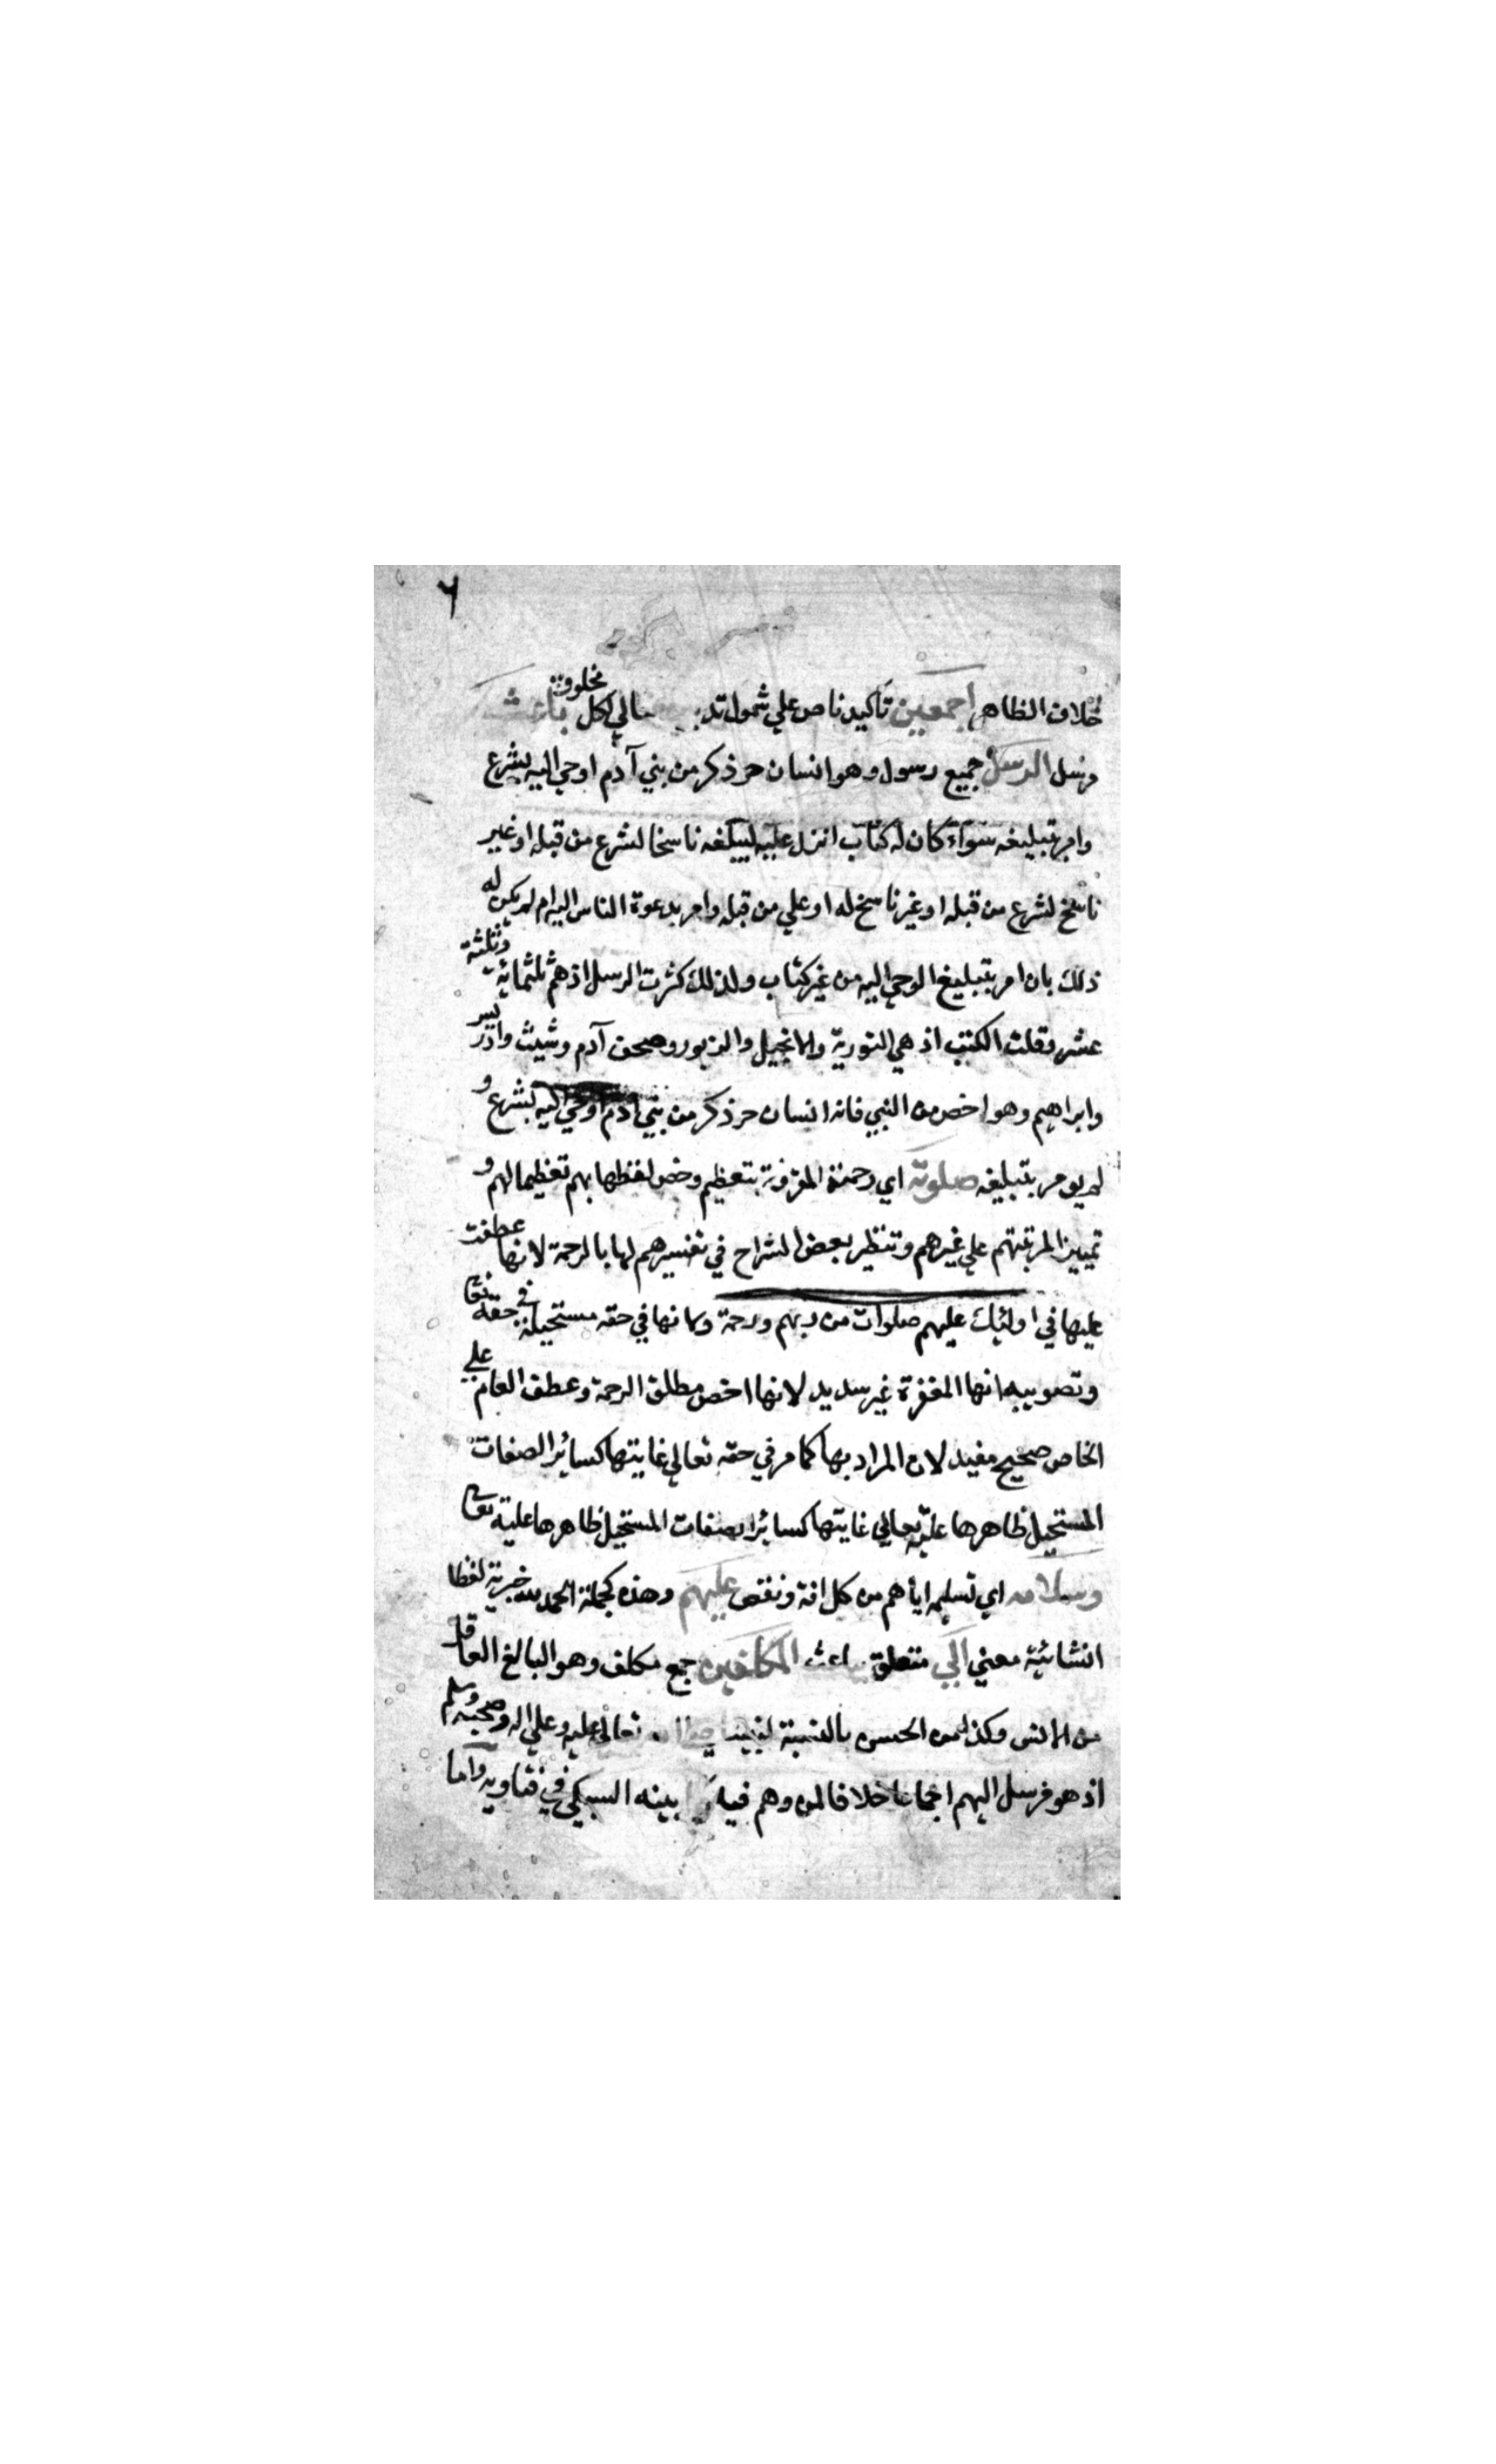 ٦
خلاف الظاهر اجمعين تأكيد ناص علي شمول تدبيره تعالي لكل مخلوق باعث
مرسل الرسل جميع رسول وهو انسان حر ذكر من بني آدم اوحي اليه بشرع
وامر بتبليغه سوآء كان له كتاب انزل عليه ليبلغه ناسخا لشرع من قبله او غير
ناسخ لشرع من قبله او غير ناسخ له او علي من قبله وامر بدعوة الناس اليه ام لم يكن له
ذلك بان امر بتبليغ الوحي اليه من غير كتاب ولذلك كثرت الرسل اذ هم ثلثمائة وثلثة
عشر وقلت الكتب اذ هي التورية والانجيل والزبور وصحف آدم وشيث وادريس
وابراهيم وهو اخص من النبي فانه انسان حر ذكر من بني آدم اوحي اليه بشرع و
لم يومر بتبليغه صلوته اي رحمته المقرونة بتعظيم وخص لفظها بهم تعظيما لهم و
تمييزا لمرتبتهم علي غيرهم وتنظير بعض الشراح في تفسيرهم لها بالرحمة لانها عطفت
عليها في اولئك عليهم صلوات من ربهم ورحمة وبانها في حقه مستحيلة في حقه تعا
وتصويبه انها المغفرة غير سديد لانها اخص مطلق الرحمة وعطف العام علي
الخاص صحيح مفيد لان المراد بها كما مر في حقه تعالي غايتها كسائر الصفات
المستحيل ظاهرها عليه تعالي غايتها كسائر الصفات المستحيل ظاهرها عليه تعا
وسلامه اي تسليمه اياهم من كل افة ونقص عليهم وهذه كجملة الحمد لله خبرية لفظا
انشائية معني الي متعلق بباعث المكلفين جمع مكلف وهو البالغ العاقل
من الانس وكذا من الجن بالنسبة لنبينا صلي الله تعالي عليه وعلي اله وصحبه وسلم
اذ هو مرسل اليهم اجماعا خلافا لمن وهم فيه كما بينه السبكي في فتاويه واما